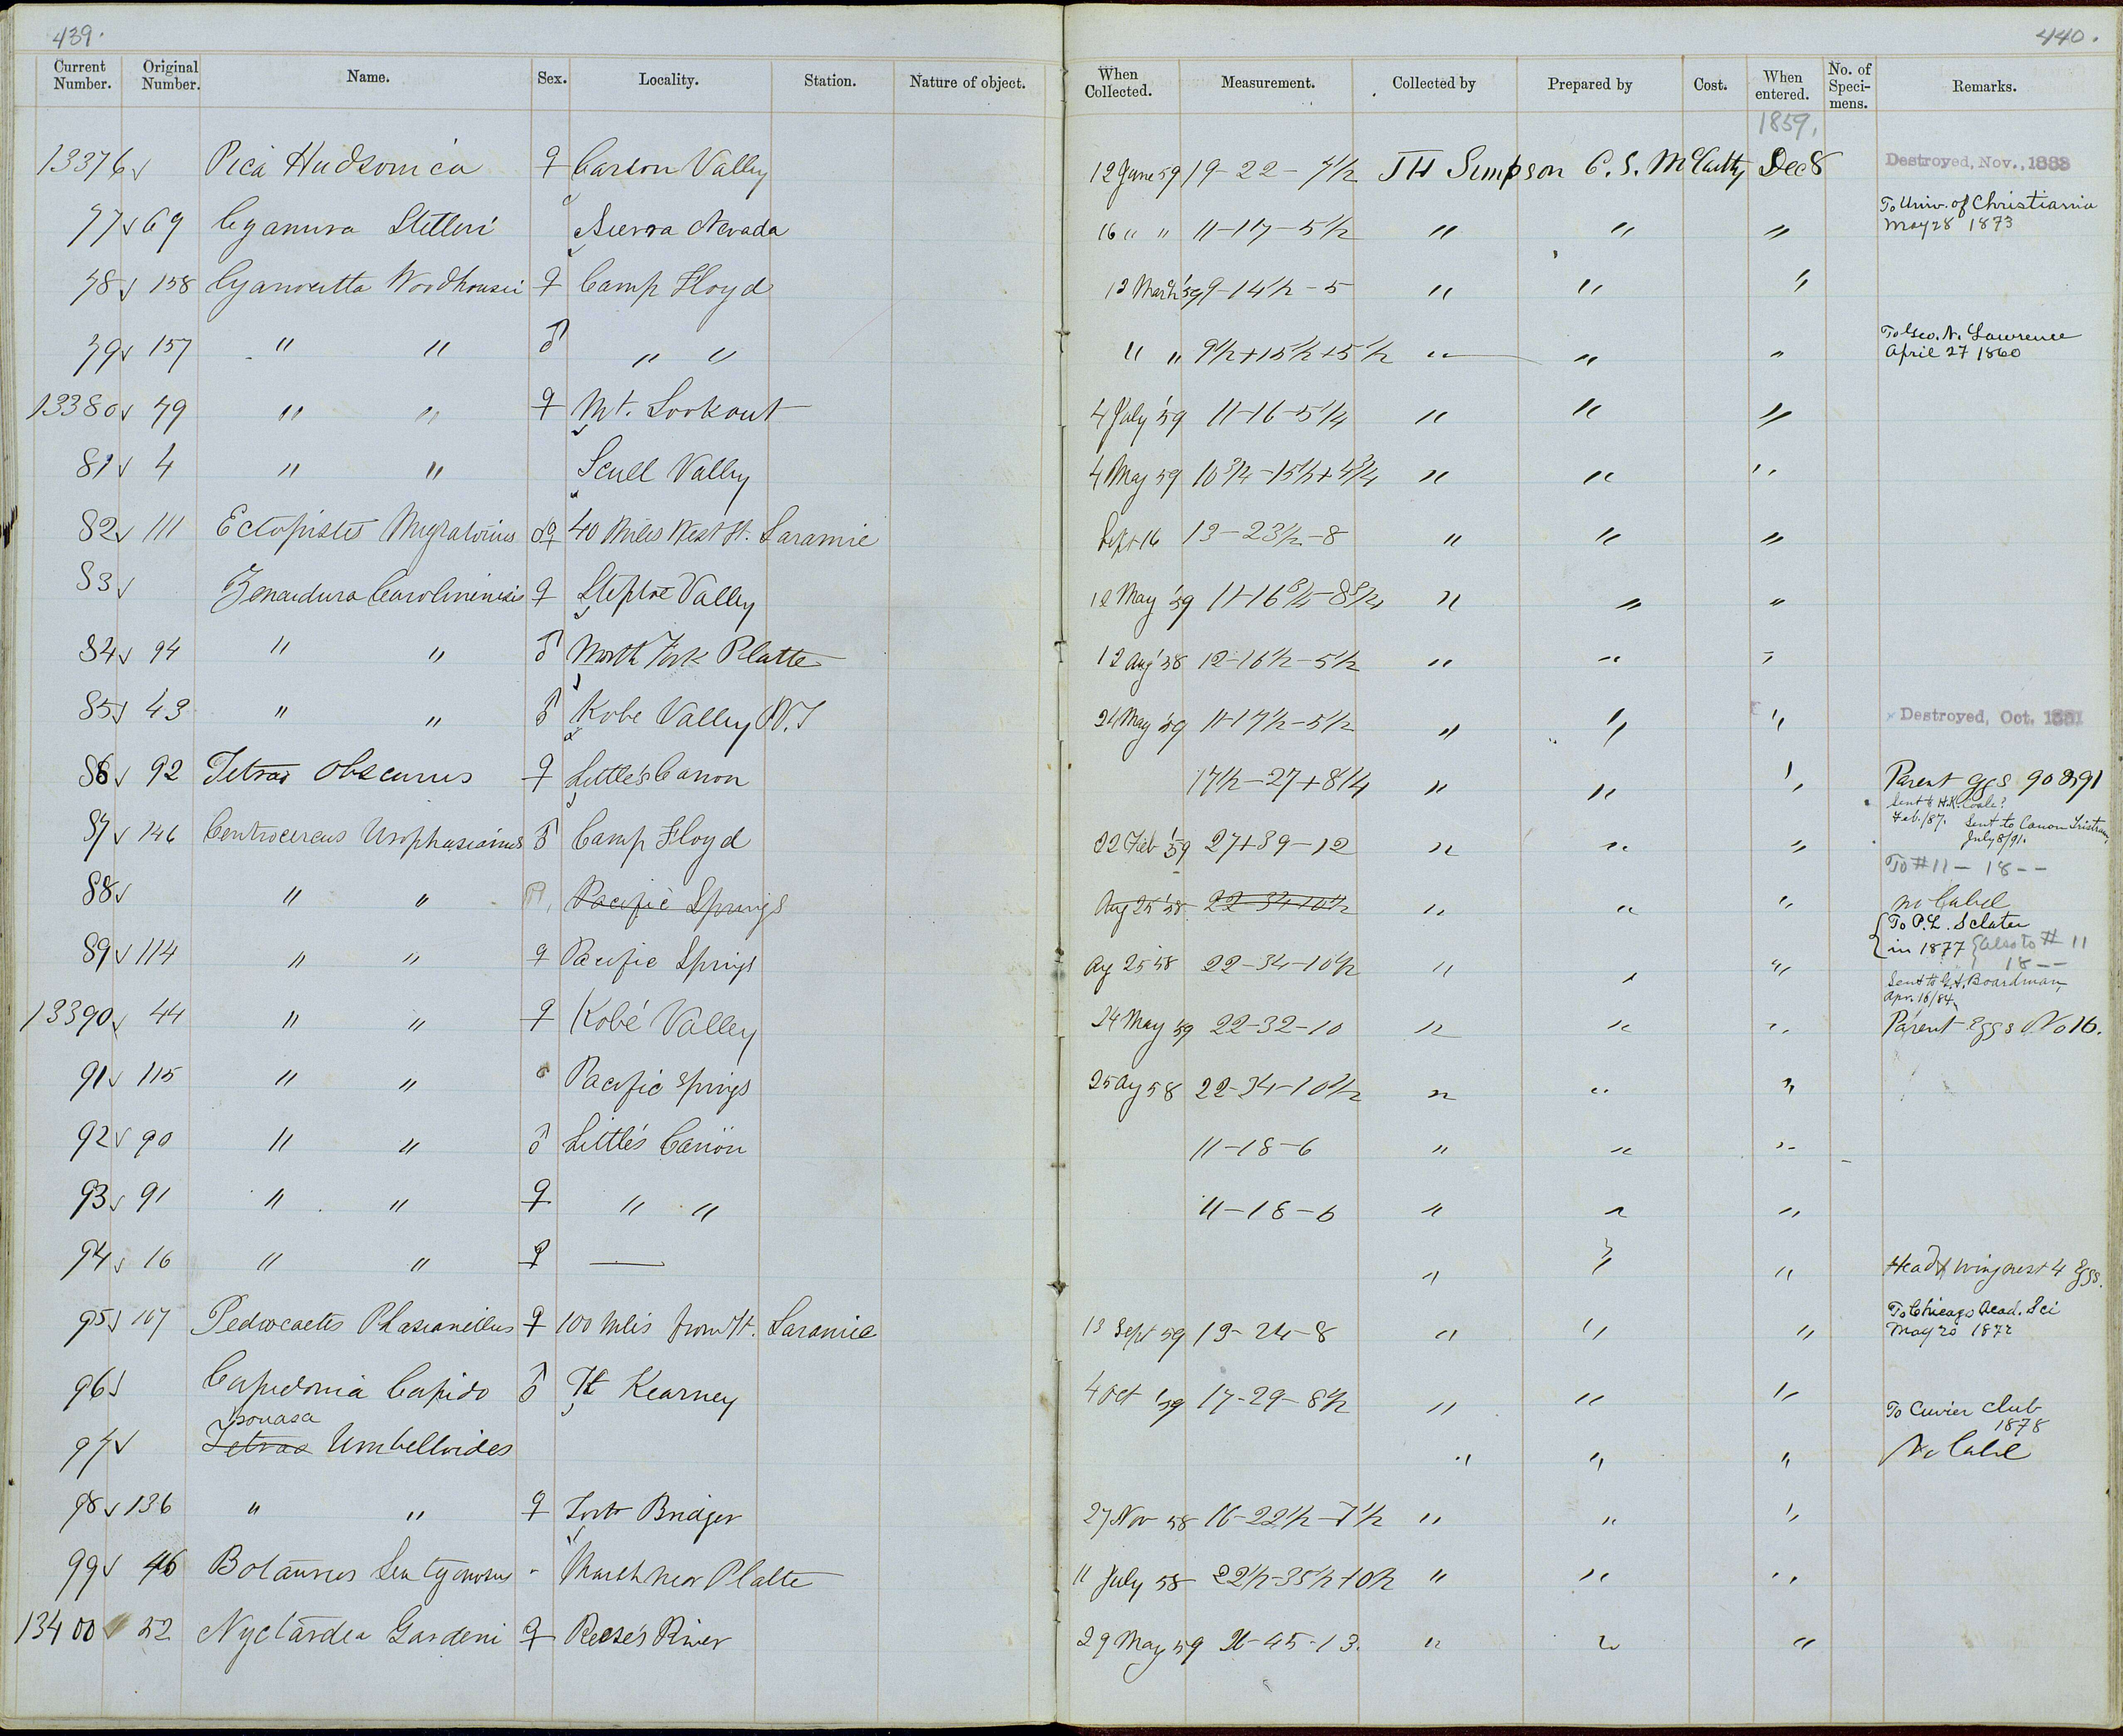 439.
440.
Current Number. Original Number. Name. Sex. Locality. Station. Nature of object. When Collected. Measurement. Collected by Prepared by Cost. When entered. No. of Speci-mens. Remarks.
1859.
13376 Pica Hudsonica ♀ Carson Valley 12 June 59 19-22-7½ JH Simpson C. S. McCarthy Dec 8 Destroyed, Nov., 1888
To Univ. of Christiania
77 69 Cyanura Stelleri Sierra Nevada 16 " " 11-17-5½ " " " May 28 1873
78 158 Cyanocitta Woodhousii ♀ Camp Floyd 13 March '59 9-14½-5 " " "
To Geo. N. Lawrence
79 157 " " ♂ " " " " 9½+15½+5½ " " " April 27 1860
13380 79 " " ♀ Mt. Lookout 4 July '59 11-16-5¼ " " "
81 4 " " Scull Valley 4 May 59 10¾-15½+4¾ " " "
82 111 Ectopistes Migratorius ♂♀ 40 Miles West Ft. Laramie Sept 16 13-23½-8 " " "
83 Zenaidura Carolinensis ♀ Steptoe Valley May '59 " " "
84 94 " " ♂ North Fork Platte 12 Aug '58 12-16½-5½ " " "
85 43 " " ♂ Kobe Valley 24 May '59 11-17½-5½ " " " Destroyed, Oct. 1881
86 92 Tetrao Obscurus ♀ Little's Canon 17½-27+8¼ " " " Parent eggs 90 & 91
Feb./87. Sent to Canon Tristram,
July 8/91.
87 146 Centrocercus Urophasianus ♂ Camp Floyd 22 Feb '59 27+39-12 " " "
To #11 - 18--
88 " " Pacific Springs Aug 25 '58 22-34-10½ " " " no Label
To P. L. Sclater
89 114 " " ♀ Pacific Springs Ag 25 58 22-34-10½ " " " in 1877 also to # 11
18--
Sent to G. A. Boardman,
Apr. 16/84.
13390 44 " " ♀ Kobé Valley 24 May '59 22-32-10 " " " Parent Eggs No 16.
91 115 " " Pacific Springs 25 Ag 58 22-34-10½ " " "
92 90 " " ♂ Little's Canon 11-18-6 " " "
93 91 " " ♀ " " 11-18-6 " " "
94 16 " " ♀ — " " " Head wing nest 4 Eggs.
To Chicago Acad. Sci
95 107 Pediocaetes Phasianellus ♀ 100 Miles from Ft. Laramie 13 Sept 59 19-24-8 " " " May 20 1872
96 Cupidonia Cupido ♂ Ft Kearney 4 Oct '59 17-29-8½ " " "
To Cuvier Club
1878
Bonasa
97 Tetrao Umbelloides " " " No Label
98 136 " " ♀ Fort Bridger 27 Nov 58 16-22½-7½ " " "
99 46 Botaurus Lentiginosus - Marsh near Platte 11 July 58 22½-35½-10½ " " "
13400 52 Nyctiardea Gardeni ♀ Reese's River 29 May 59 26-45-13. " " "